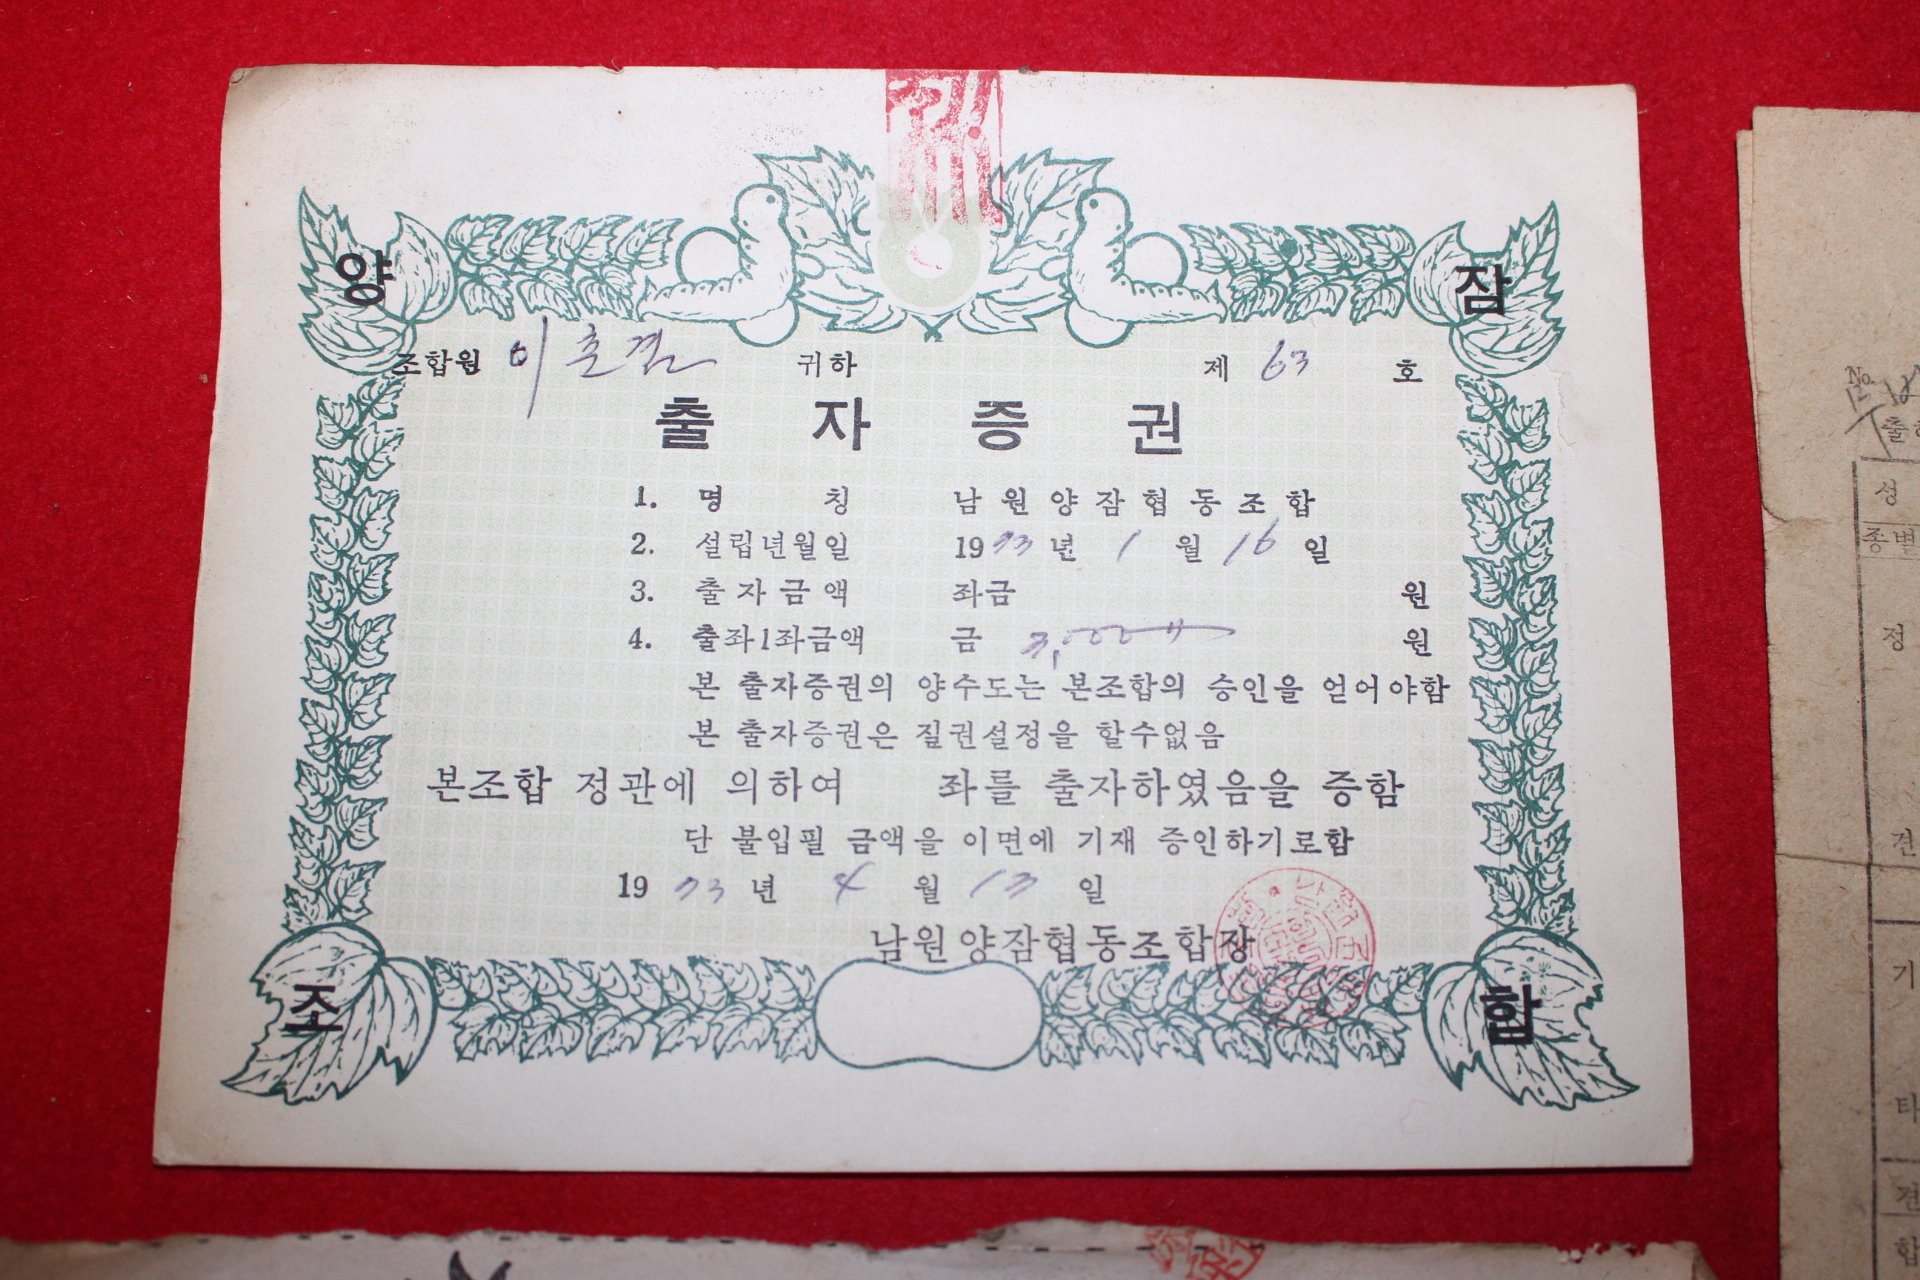 양 잠
조합원 이춘겸 귀하 제 63 호
출자증권
1. 명 칭 남원양잠협동조합
2. 설립년월일 1973년 1월 16일
3. 출자금액 좌금 원
4. 출좌1좌금액 금 원
본 출자증권의 양수도는 본조합의 승인을 얻어야함
본 출자증권은 질권설정을 할수없음
본조합 정관에 의하여 좌를 출자하였음을 증함
단 불입필 금액을 이면에 기재 증인하기로함
1973년 4월 13일
남원양잠협동조합장
조 합
No.
성
종별
정
견
기
타
견
합